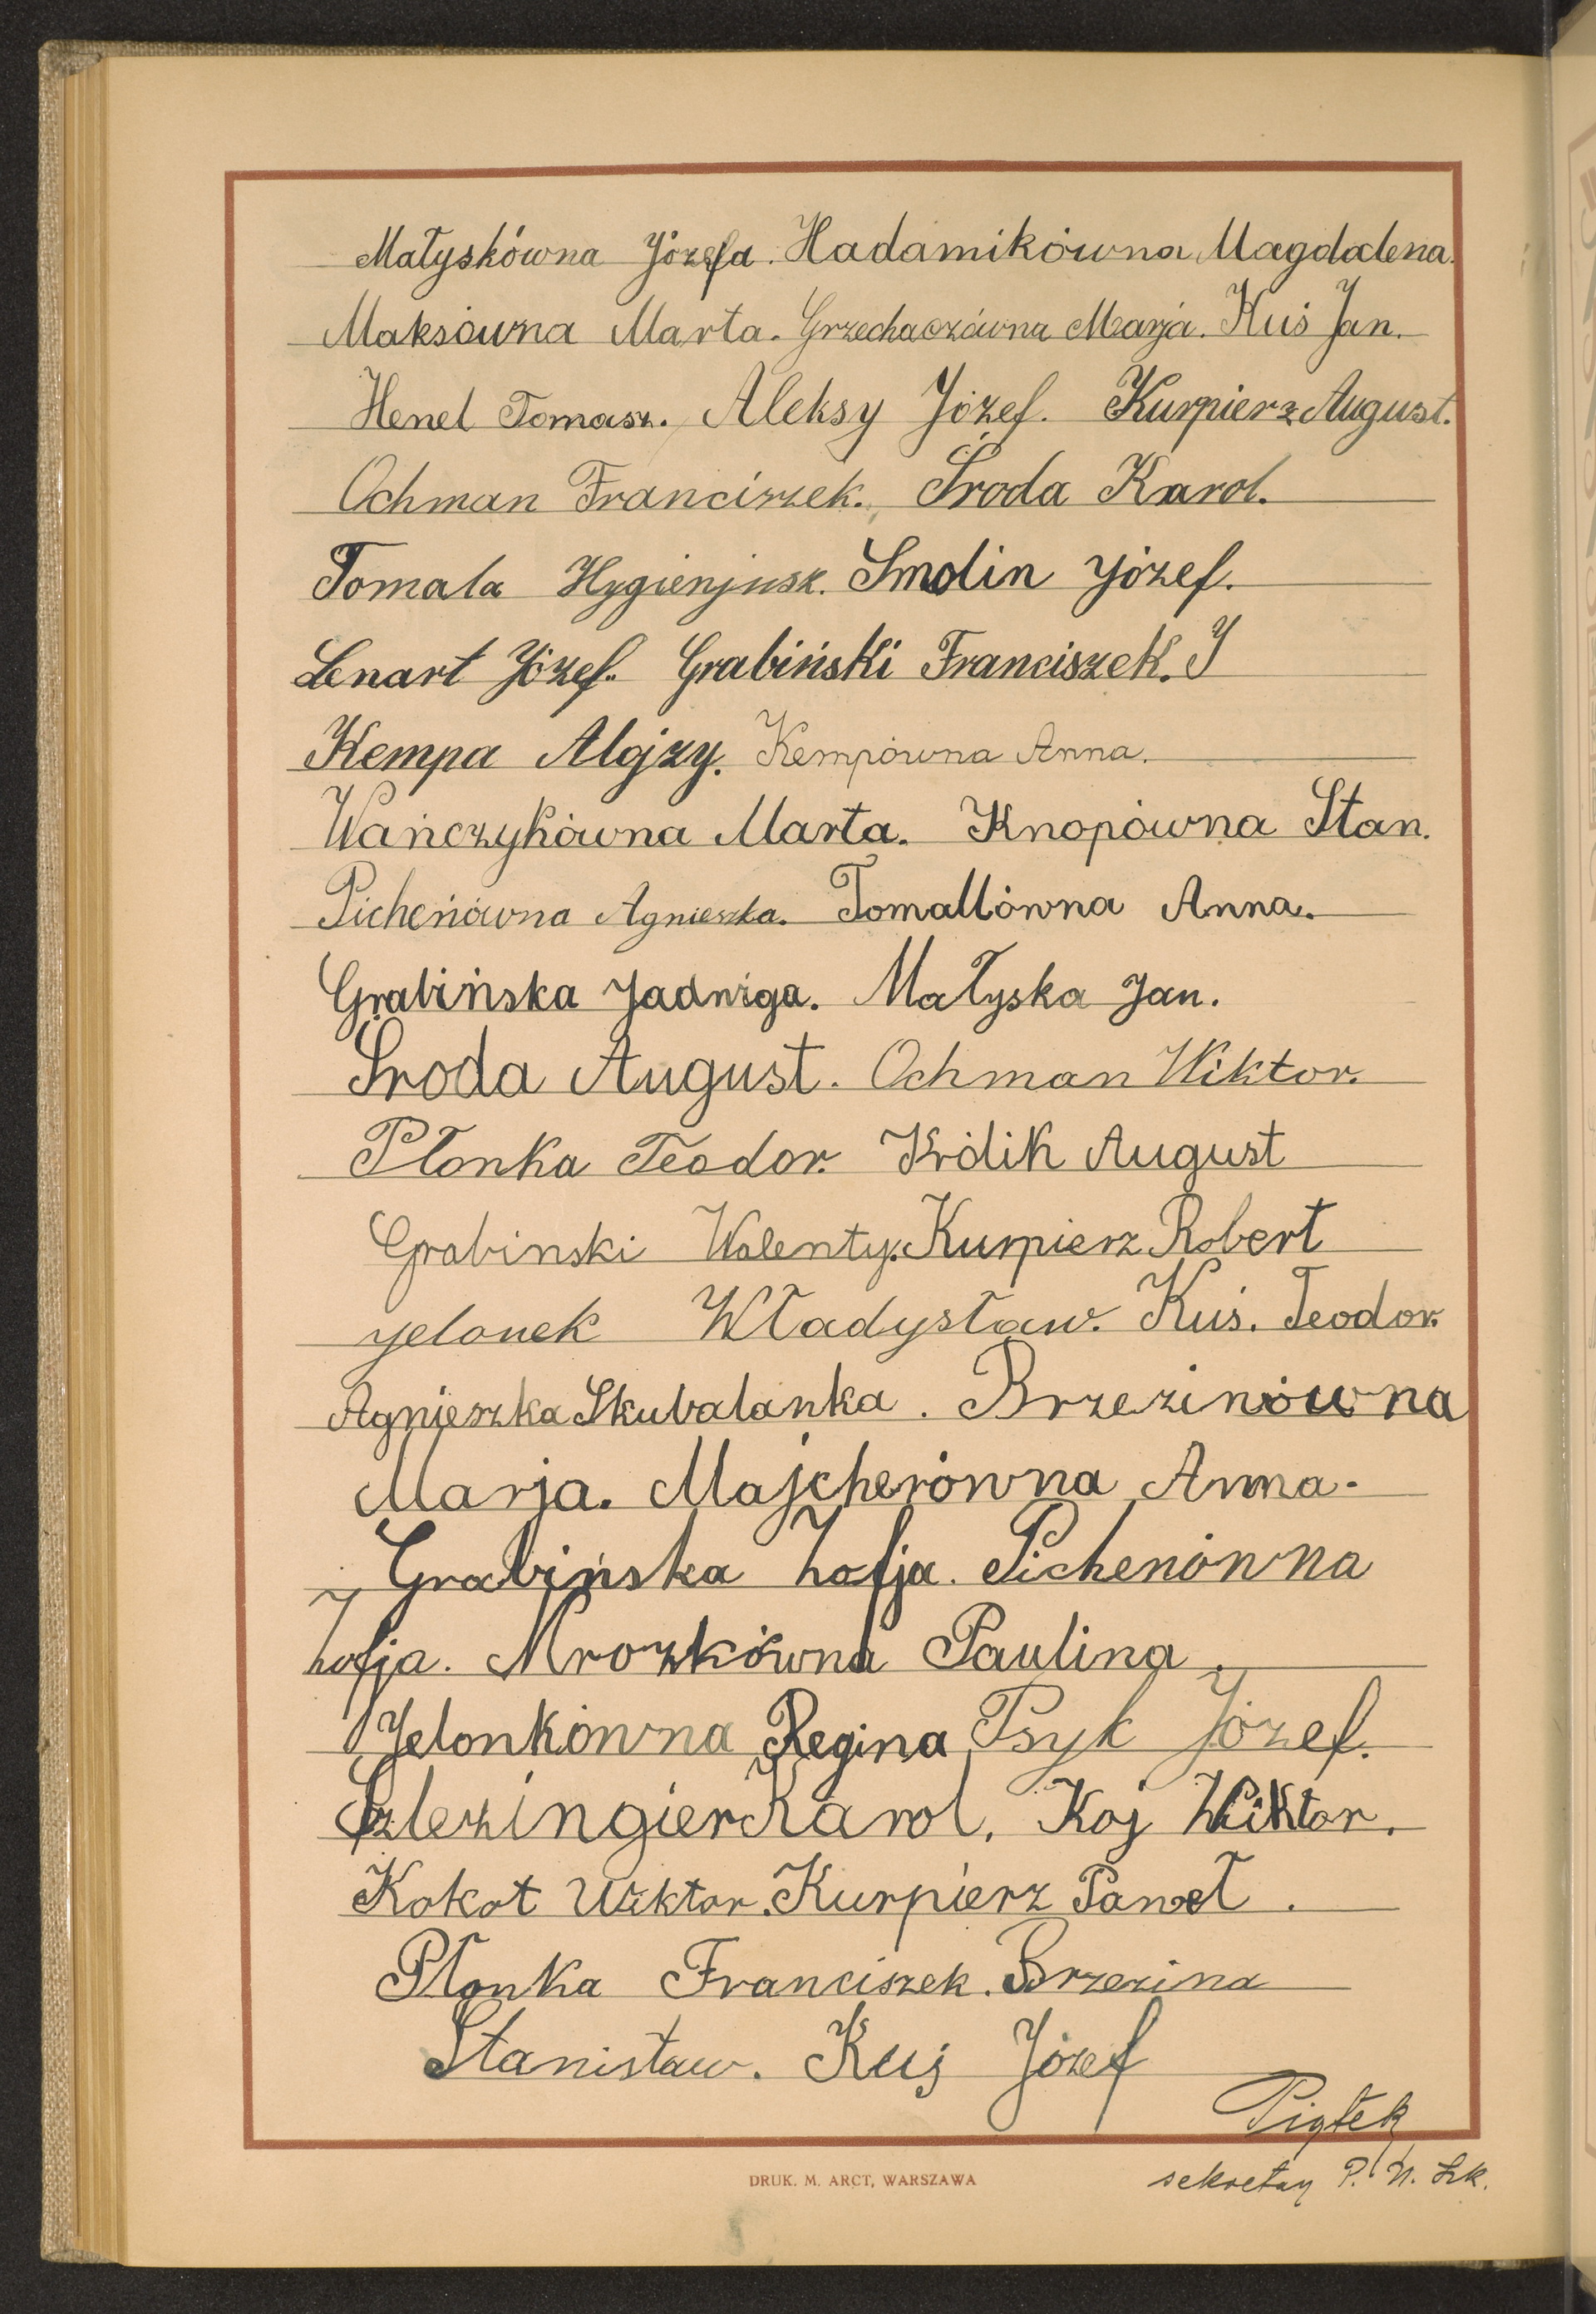 Małyskówna Józefa. Hadamikówna Magdalena.
Maksówna Marta. Grzechaczówna Marja. Kuś Jan.
Henel Tomasz. Aleksy Józef. Kurpierz August.
Ochman Franciszek. Środa Karol.
Tomala Hygienjusz. Smolin Józef.
Lenart Józef. Grabiński Franciszek. J
Kempa Alojzy. Kempówna Anna.
Wańczykówna Marta. Knopówna Stan.
Picheńówna Agnieszka. Tomallówna Anna.
Grabińska Jadwiga. Małyska Jan.
Środa August. Ochman Wiktor.
Płonka Teodor. Królik August
Grabinski Walenty. Kurpierz Robert
Jelonek Władysław. Kuś. Teodor.
Agnieszka Skubalanka. Brzezinówna
Marja. Majcherówna Anna.
Grabińska Zofja. Pichenówna
Zofja. Mrozkówna Paulina.
Jelonkówna Regina Psyk Józef.
Szlezingier Karol. Koj Wiktor.
Kokot Wiktor. Kurpierz Paweł.
Płonka Franciszek. Brzezina
Stanisław. Kuś Józef
Piątek
sekretarz P. N. Szk.
DRUK. M. ARCT, WARSZAWA